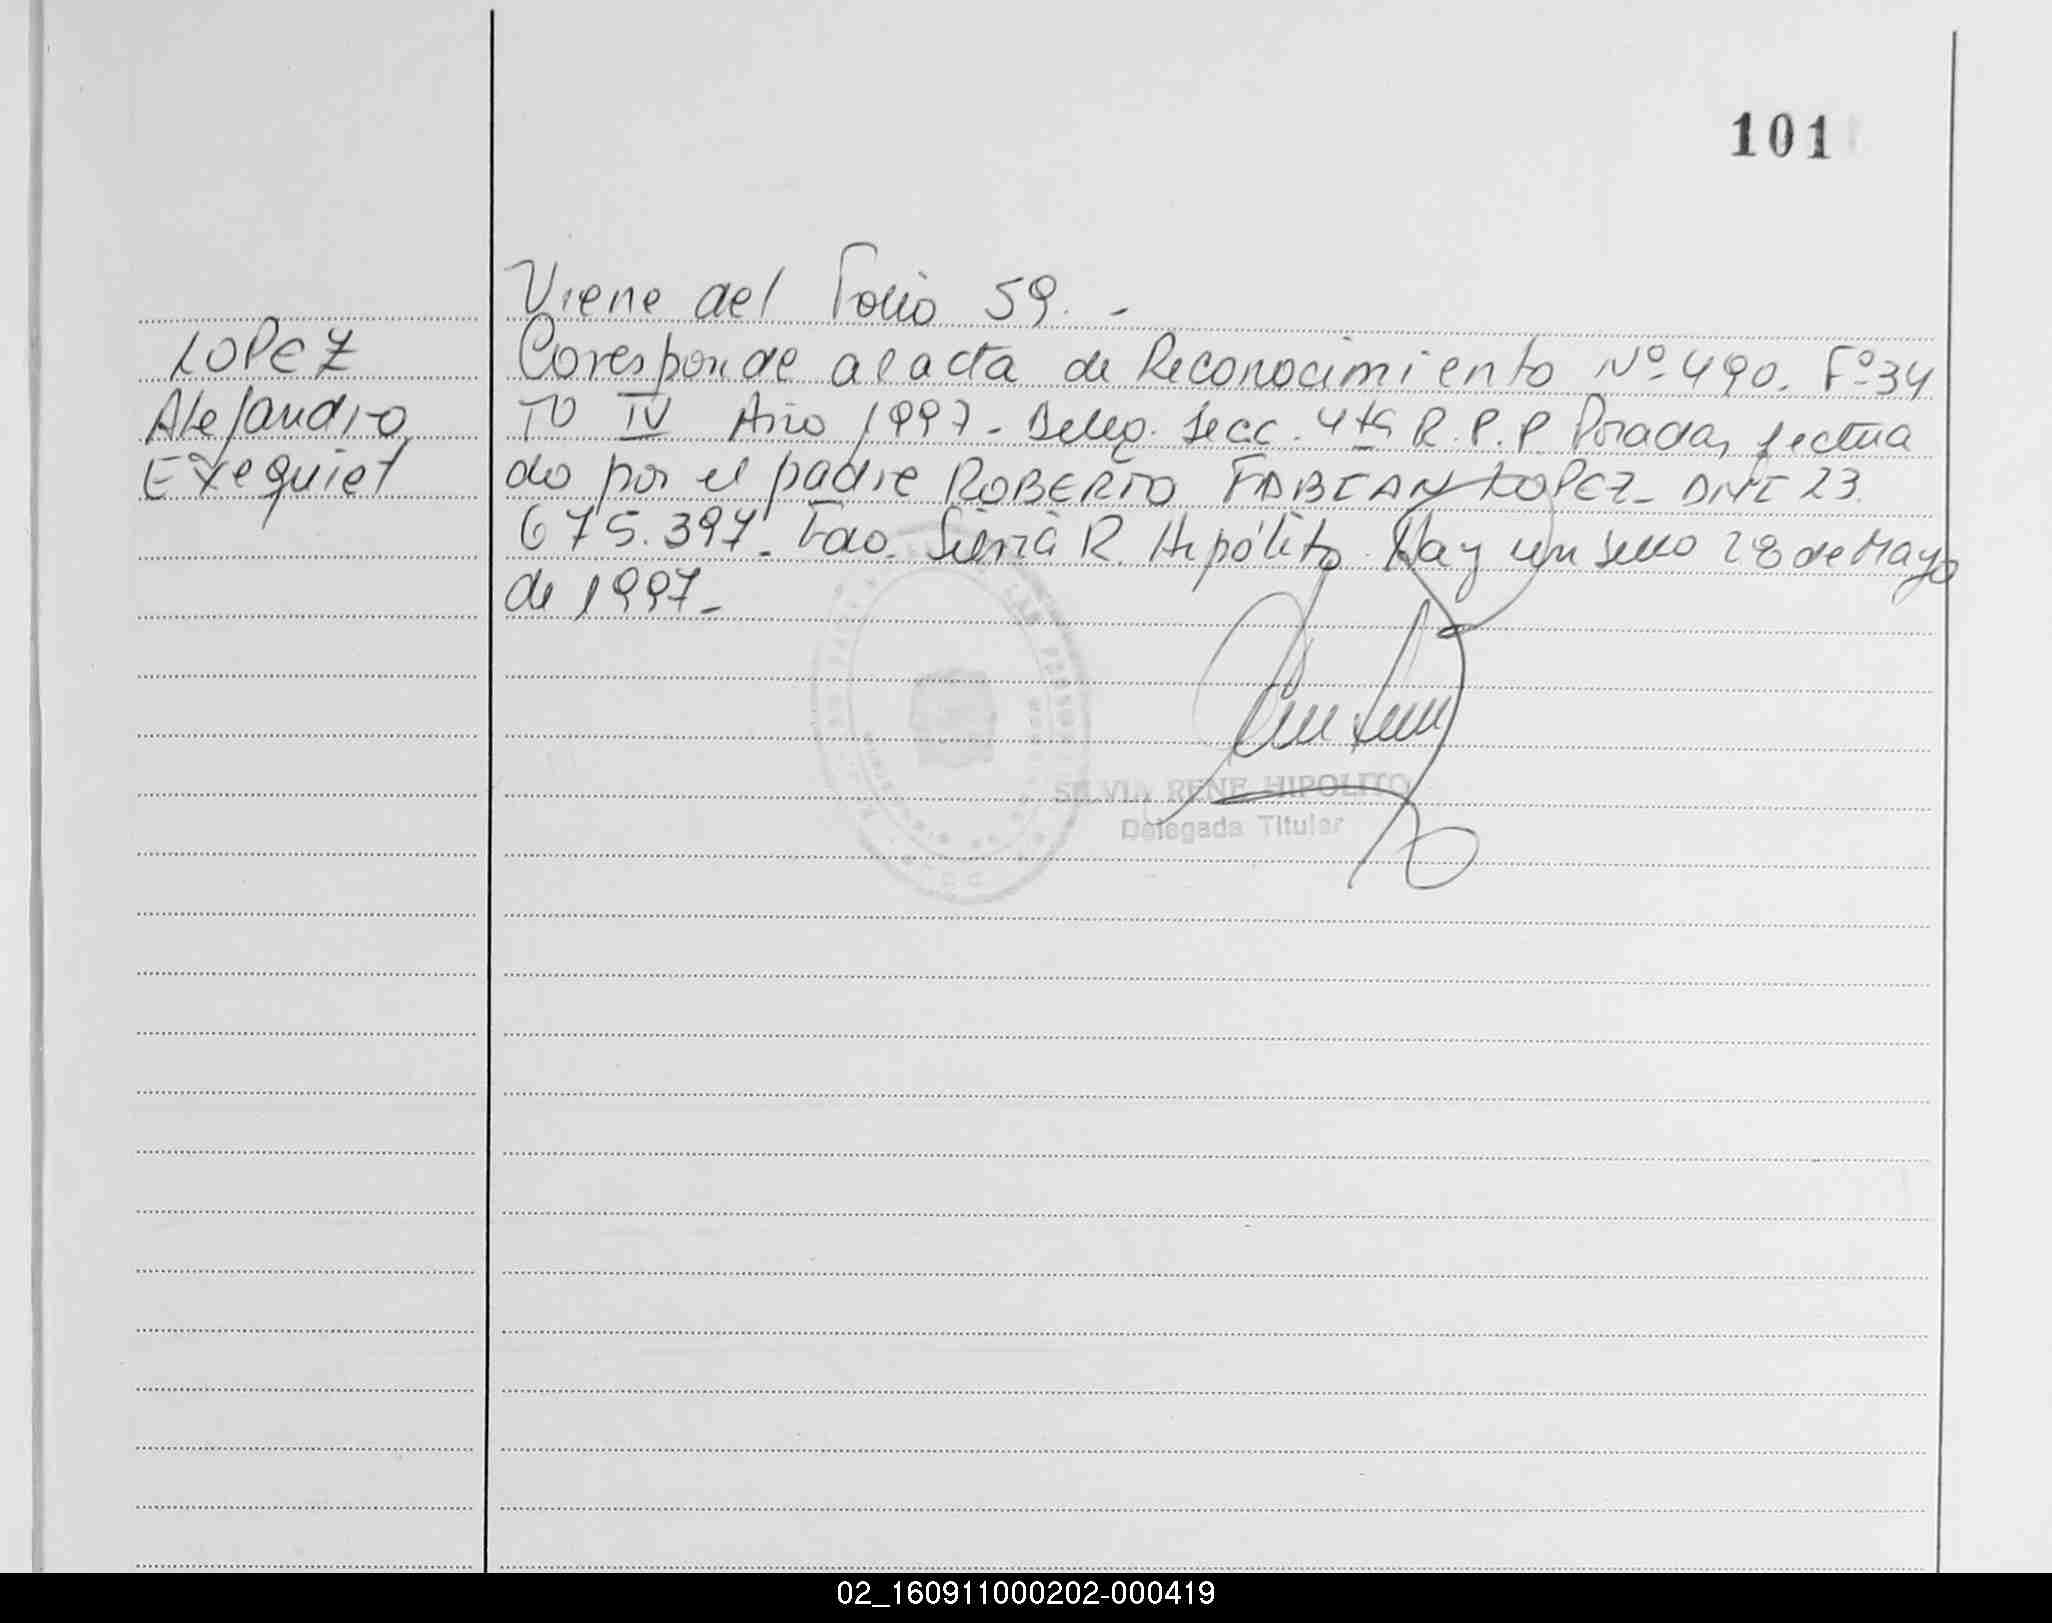 101
Viene del Folio 59. -
LOPEZ
Alejandro
Exequiel
Coresponde al acta de Reconocimiento Nº 490. Fº 34
Tº IV Año 1997 - Deleg. Secc. 4ta R. P. P. Posadas, fectua
do por el padre ROBERTO FABIAN LOPEZ - DNI 23.
675.397. Fdo. Silvia R. Hipólito. Hay un sello 28 de Mayo
de 1997 -
SILVIA RENE HIPOLITO
Delegada Titular
02_160911000202-000419